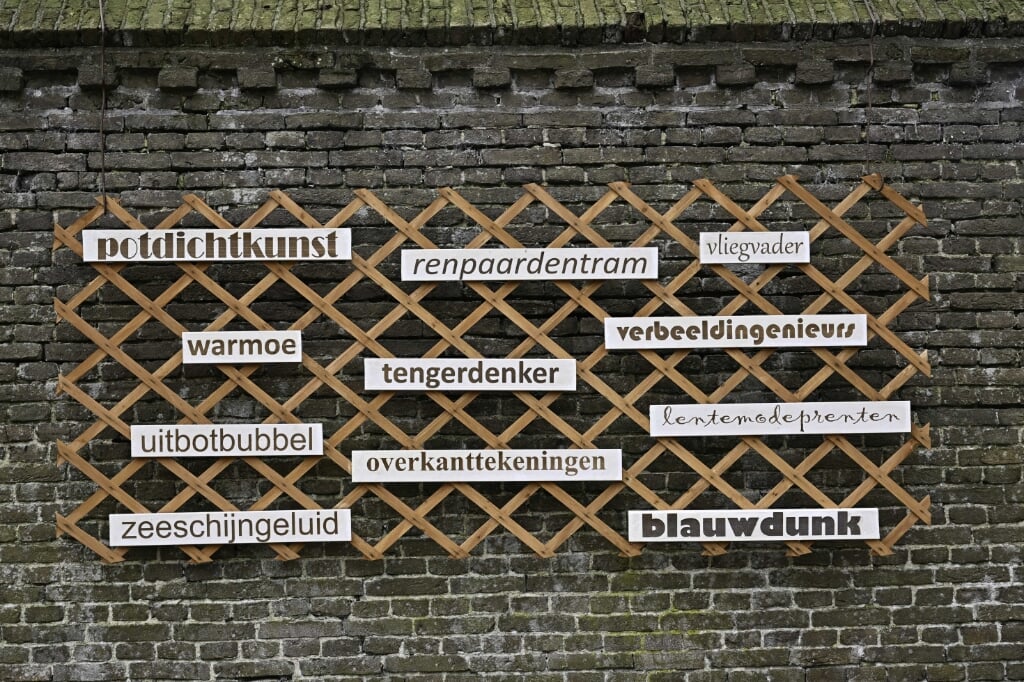 potdichtkunst
renpaardentram
vliegvader
warmoe
verbeeldingenieurs
tengerdenker
lentemodeprenten
uitbotbubbel
overkanttekeningen
zeeschijngeluid
blauwdunk